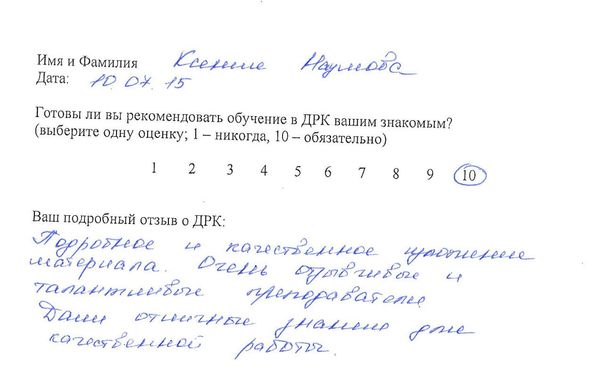 Имя и Фамилия Ксения Наумова
Дата: 10.07.15
Готовы ли вы рекомендовать обучение в ДРК вашим знакомым?
(выберите одну оценку; 1 – никогда, 10 – обязательно)
1 2 3 4 5 6 7 8 9 10
Ваш подробный отзыв о ДРК:
Подробное и качественное изложение
материала. Очень отзывчивые и
талантливые преподаватели
Дали отличные знания для
качественной работы.